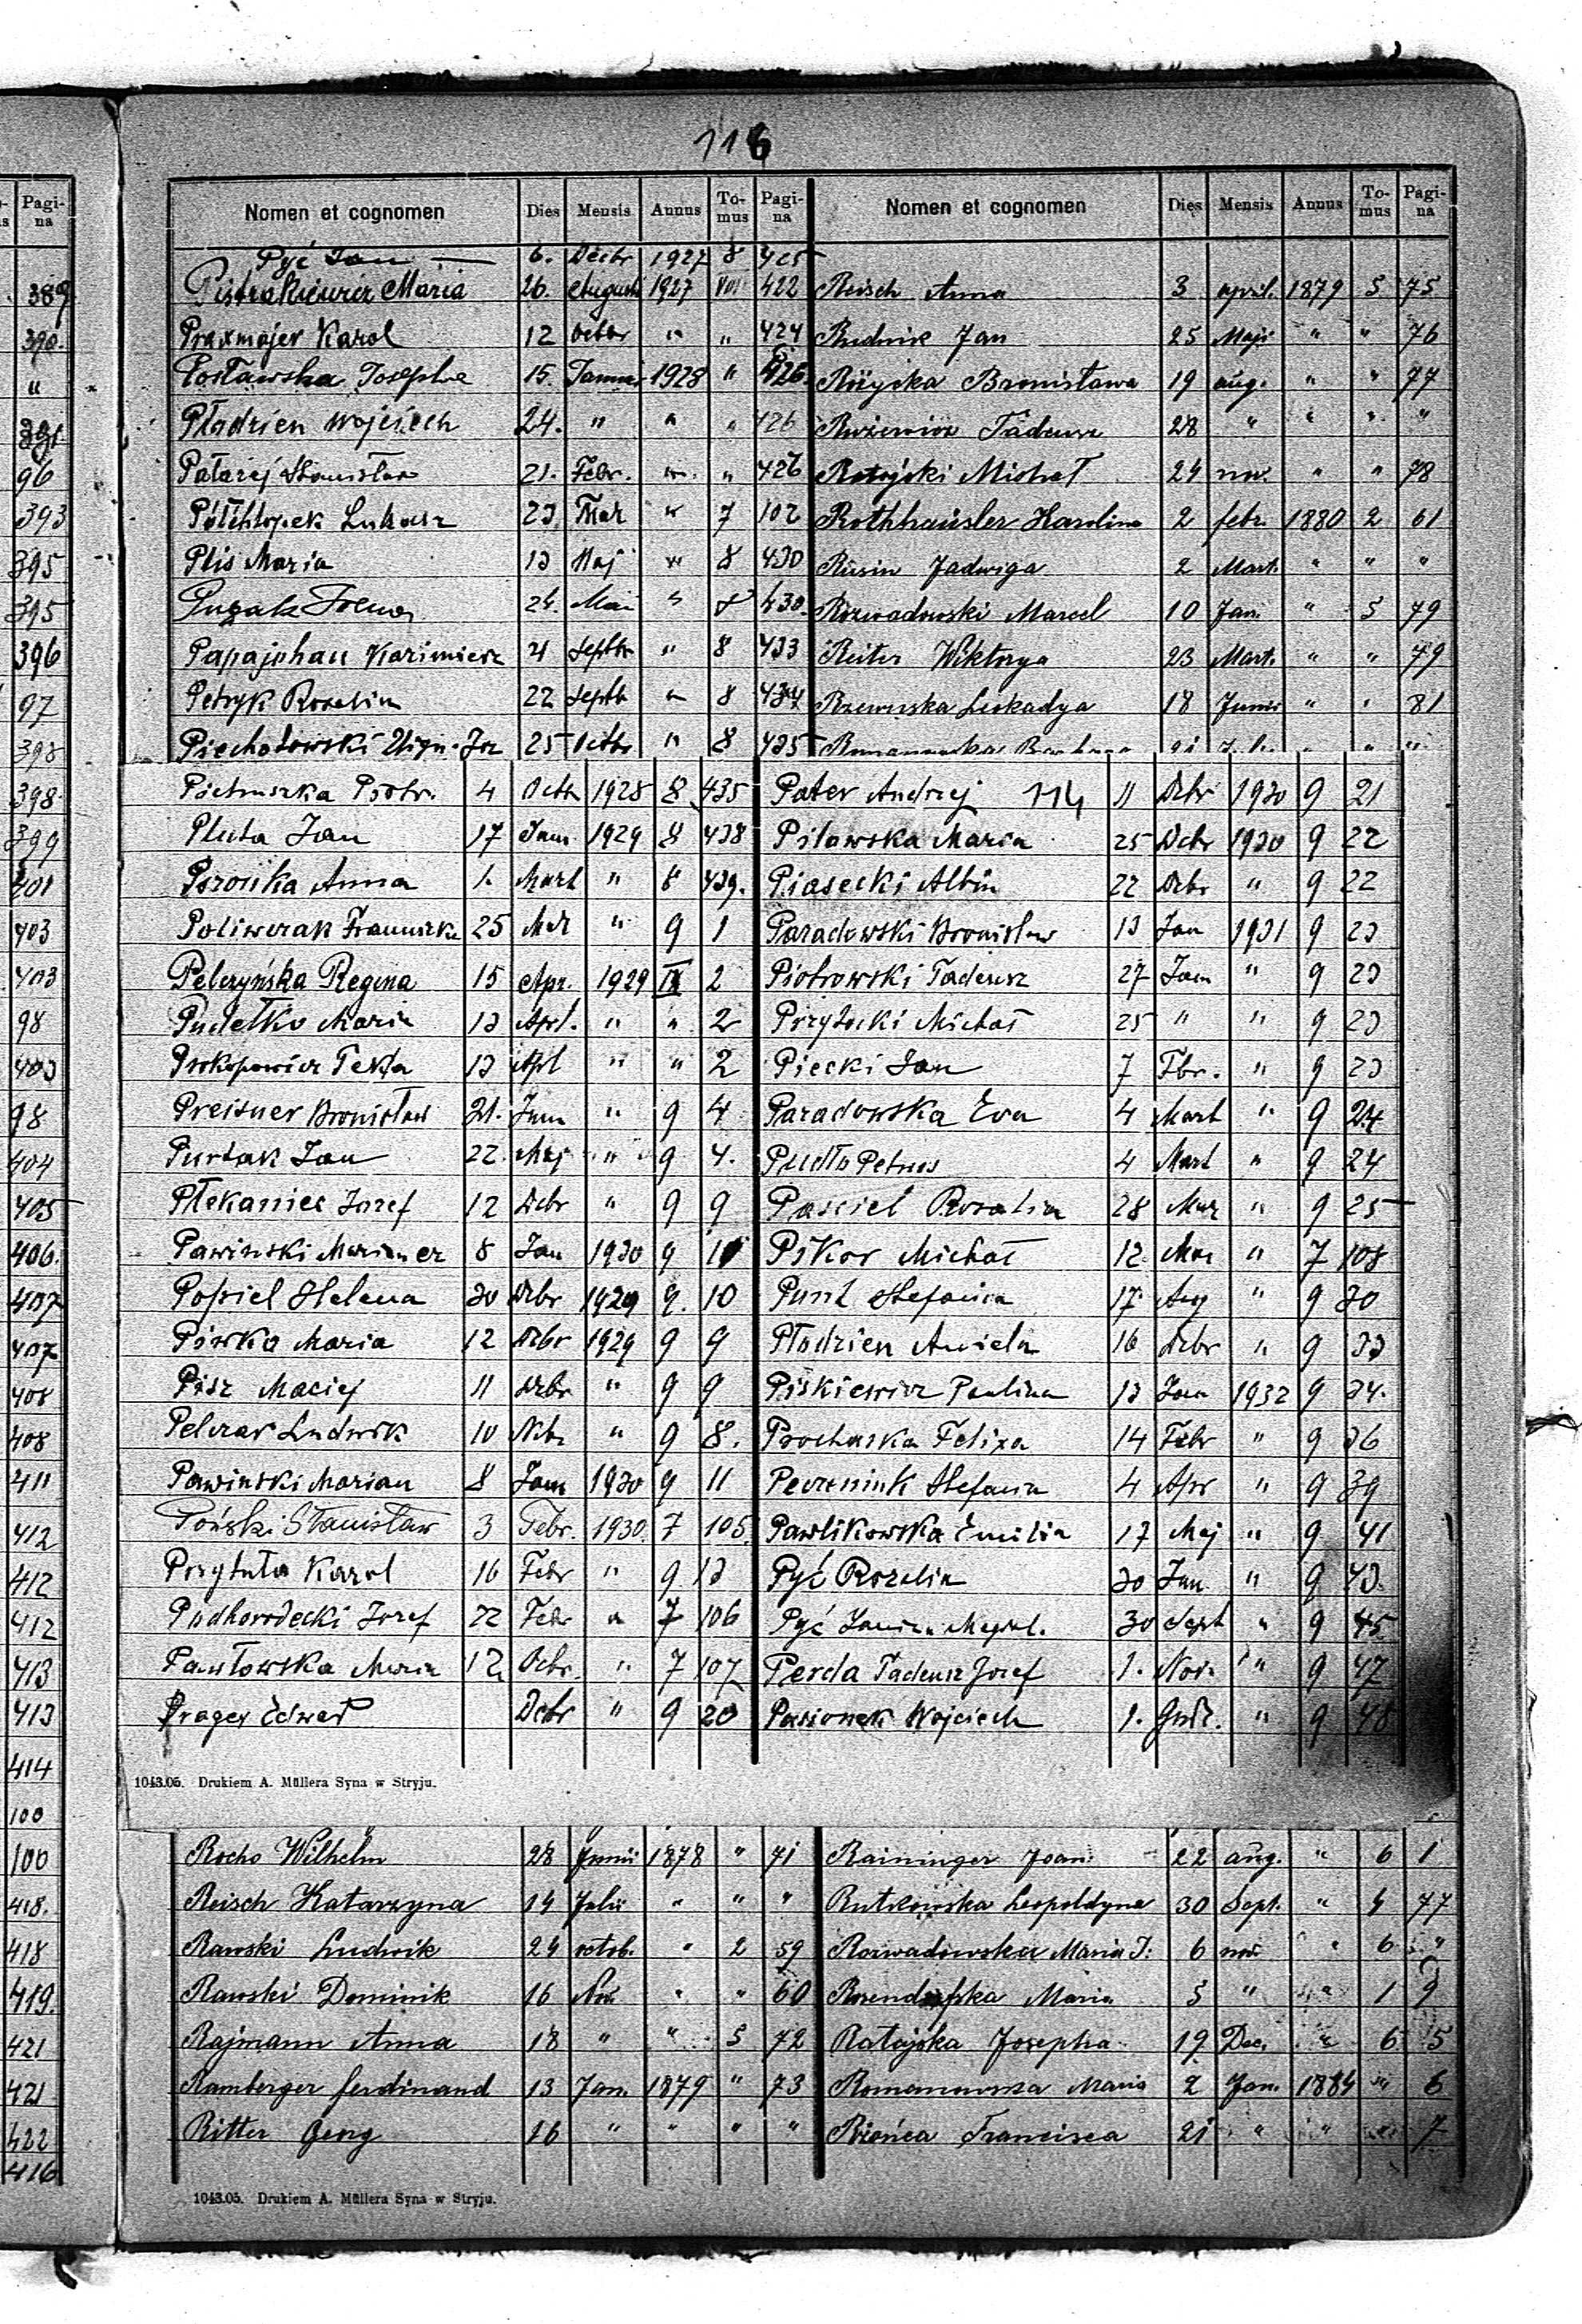 116
Pagi-na
389
390.
"
391
96
393
395
395
396
97
398
398
399
401
403
403
98
403
98
404
405
406.
407
407
408
408
411
412
412
412
413
413
414
100
100
418.
418
419.
421
421
422
416
Nomen et cognomen Dies Mensis Annus To-mus Pagi-na
Pyć Jan — 6. Decbr 1927 8 425
Maria 26. Augusti 1927 VIII 422
Praxmajer Karol 12 Octbr " " 424
Posławska Josepha 15. Januar 1928 " 426.
Płodzien Wojciech 24. " " " 426
Patarej Stanisław 21. Febr. " " 426
Półchłopek Lukasz 23 Mar " 7 102
Plis Maria 13 Maj " 8 430
24. Mai " 8 430.
Papajohan Kazimierz 21 Septbr " 8 433
Petryk Rozalia 22 Septb " 8 434
Piechotowski 25 Octbr " 8 435
Nomen et cognomen Dies Mensis Annus To-mus Pagi-na
Reisch Anna 3 april. 1879 5 75
Rudnik Jan 25 Maji " " 76
Różycka Bronisława 19 aug. " " 77
Tadeusz 28 " " " "
Ratajski Michał 24 nov. " " 78
Rothhäusler Karolina 2 febr. 1880 2 61
Rusin Jadwiga 2 Mart. " " "
Rozwadowski Marcel 10 Jan. " 5 79
Reiter Wiktorya 23 Mart. " " 79
Rzewuska Leokadya 18 Junii " " 81
Pietruszka Piotr. 4 Octb 1928 8 435
Pluta Jan 17 Jan. 1929 8 438
Anna 1. Mart " 8 439.
Poliwczak Franciszka 25 Mar " 9 1
Pelczyńska Regina 15 Apr. 1929 IX 2
Pudełko Maria 13 Apl. " " 2
Prokopowicz Tekla 13 Apl " " 2
Preisner Bronisław 21. Jun " 9 4
Jan 22. Maj " 9 4.
Płekaniec Jozef 12 Dcbr " 9 9
Pawinski 8 Jan 1930 9 11
Popiel Helena 30 Dcbr 1929 9. 10
Piwko Maria 12 Dcbr 1929 9 9
Pisz Maciej 11 Dcbr " 9 9
Pelczar Ludwik 10 Nbr " 9 8.
Pawinski Marian 8 Jan 1930 9 11
Poński Stanisław 3 Febr. 1930. 7 105.
Przytuła Karol 16 Febr " 9 13
Podhorodecki Jozef 22 Febr " 7 106
Pawłowska Maria 12 Ocbr. " 7 107
Prager Edward Dcbr " 9 20
Pater Andrzej 114 11 Dcbr 1930 9 21
Pilawska Maria 25 Dcbr 1930 9 22
Piasecki Albin 22 Dcbr " 9 22
Paradowski Bronisław 13 Jan 1931 9 23
Piotrowski Tadeusz 27 Jan " 9 23
Przytocki Michał 25 " " 9 23
Piecki Jan 7 Fbr. " 9 23
Paradowska Eva 4 Mart " 9 24
Pudło Petrus 4 Mart " 9 24
Rozalia 28 Mar " 9 25
Pikor Michał 12 Mai " 7 108
Stefania 17 Aug " 9 30
Płodzien Aniela 16 Dcbr " 9 33
Piskiewicz Paulina 13 Jan 1932 9 34.
Prochaska Felixa 14 Febr " 9 36
Stefania 4 Apr " 9 39
Pawlikowska Emilia 17 Maj " 9 41
Pyć Rozalia 30 Jun " 9 43.
Pyć 30 Sept " 9 45
Perda Tadeusz Jozef 1. Nov. " 9 47
Pasionek Wojciech 1. Grud. " 9 48
1043.05. Drukiem A. Müllera Syna w Stryju.
Rocho Wilhelm 28 Junii 1878 " 71
Reisch Katarzyna 14 Julii " " "
Rawski Ludwik 24 octob. " 2 59
Rawski Dominik 16 Nov. " " 60
Rajmann Anna 18 " " 5 72
Ramberger ferdinand 13 Jan. 1879 " 73
Ritter Georg 16 " " " "
Raininger Joan. 22 aug. " 6 1
Rutkowska Leopoldyna 30 Sept. " 4 77
Rozwadowska Maria J: 6 nov. " 6 "
Maria 5 " " 1 9
Ratajska Josepha 19 Dec. " 6 5
Romanowska Maria 2 Jan. 1884 " 6
Francisca 21 " " " 7
1043.05. Drukiem A. Müllera Syna w Stryju.